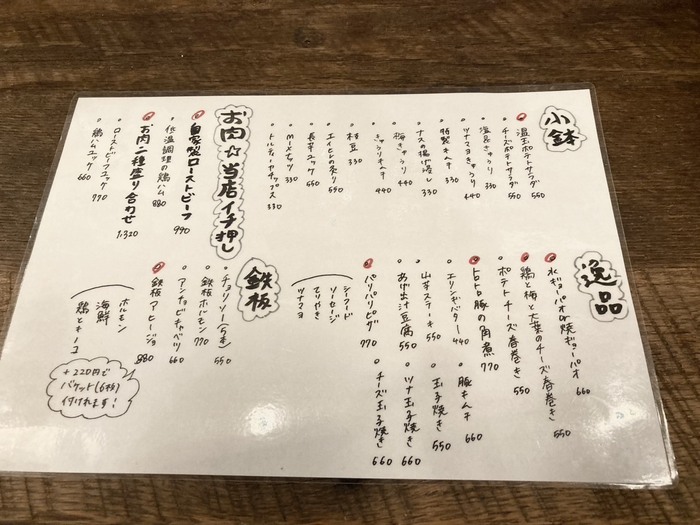 小鉢
温玉ポテトサラダ 550
チーズポテトサラダ 550
塩昆きゅうり 330
ツナマヨきゅうり 440
特製キムチ 330
ナスの揚げ浸し 330
梅きゅうり 440
きゅうりキムチ 440
枝豆 330
エイヒレの炙り 550
長芋ユッケ 550
Mixナッツ 330
トルティヤチップス 330
お肉☆当店イチ押し
自家製ローストビーフ 990
低温調理の鶏ハム 880
お肉二種盛り合わせ 1,320
ローストビーフユッケ 770
鶏ハムユッケ 660
逸品
水ギョーパオor焼ギョーパオ 660
鶏と梅と大葉のチーズ春巻き 550
ポテトチーズ春巻き 550
トロトロ豚の角煮 770
エリンギバター 440
山芋ステーキ 550
あげ出汁豆腐 550
パリパリピザ 770
シーフード
ソーセージ
てりやき
ツナマヨ
豚キムチ 660
玉子焼き 550
ツナ玉子焼き 660
チーズ玉子焼き 660
鉄板
チョリソー(5本) 550
鉄板ホルモン 770
アンチョビキャベツ 660
鉄板アヒージョ 880
ホルモン
海鮮
鶏ときのこ
+220円で
バケット(6枚)
付けれます!